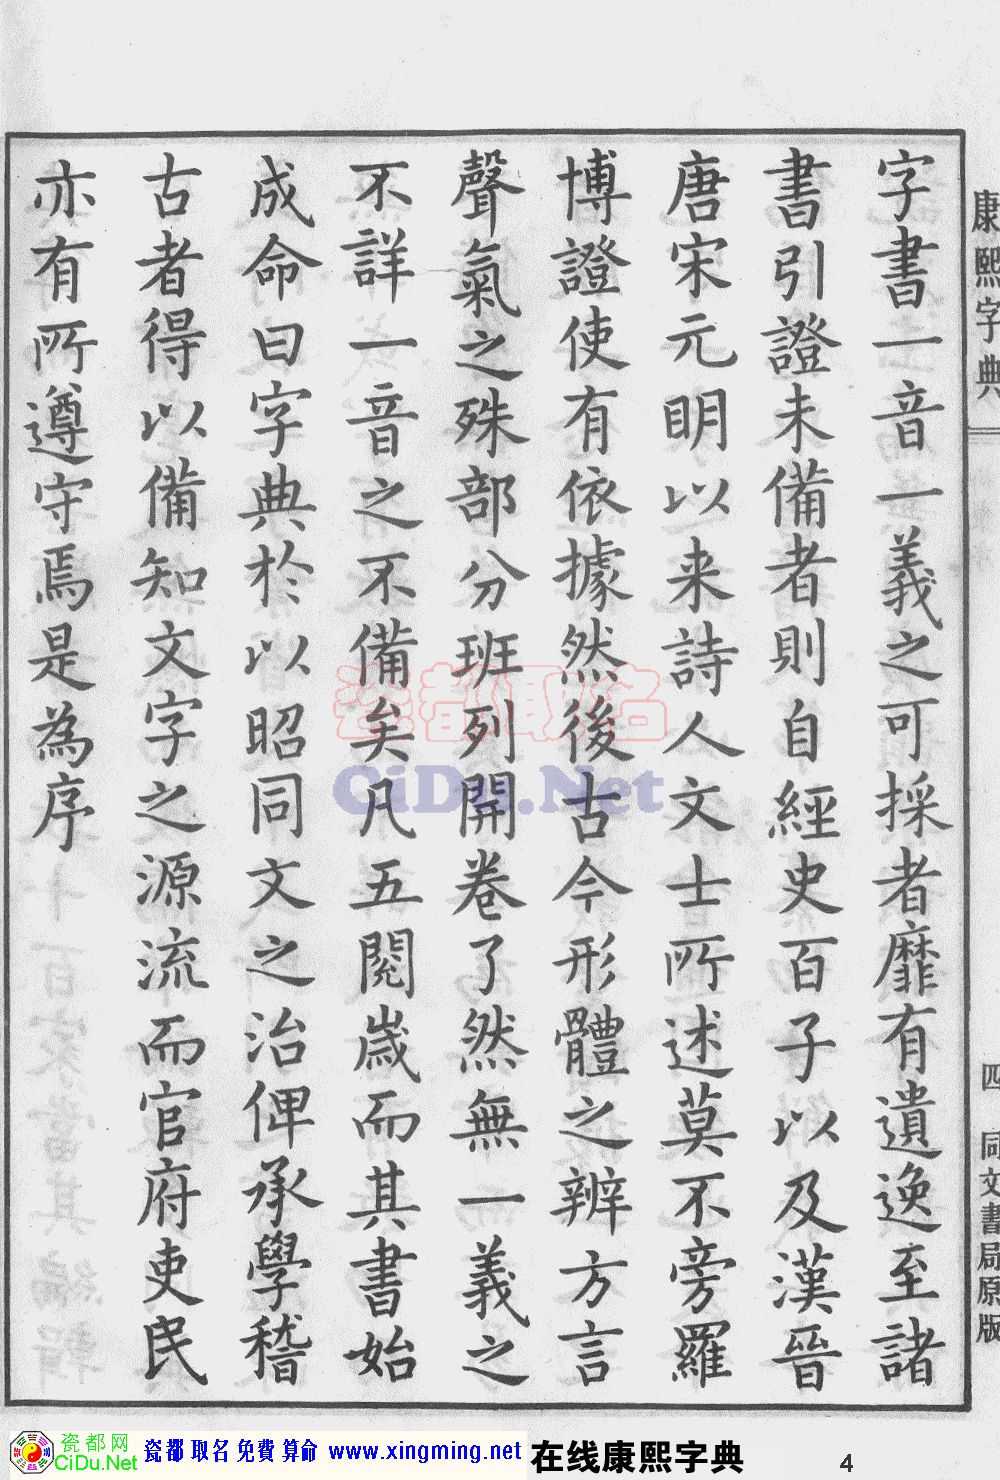 康熙字典
四
同文書局原版
字書一音一義之可採者靡有遺逸至諸
書引證未備者則自經史百子以及漢晉
唐宋元明以来詩人文士所述莫不旁羅
博證使有依據然後古今形體之辨方言
聲氣之殊部分班列開卷了然無一義之
不詳一音之不備矣凡五閱歲而其書始
成命曰字典於以昭同文之治俾承學稽
古者得以備知文字之源流而官府吏民
亦有所遵守焉是為序
瓷都取名
CiDu.Net
瓷都网
CiDu.Net
瓷都取名免費算命 www.xingming.net
在线康熙字典
4